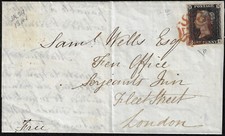 POSTAGE
Saml. Wells Esqr
Fen Office
Serjeants Inn
Fleet Street
London
Free